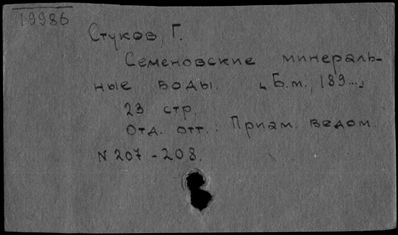 19986
Стуков, Г.
Семеновские минераль-
ные воды. [Б.м., 189...]
23 стр.
Отд. отт.: Приам. ведом.
N 207-208.